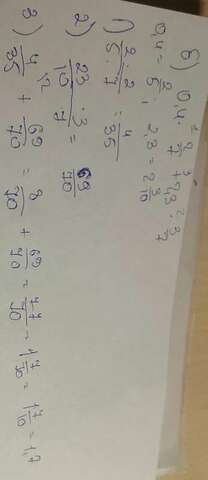 б) 0,4 · 2/7 + 2,3 · 3/7
0,4 = 2/5; 2,3 = 2 3/10
1) 2/5 · 2/7 = 4/35
2) 23/10 · 3/7 = 69/70
3) 4/35 + 69/70 = 8/70 + 69/70 = 77/70 = 1 7/70 =